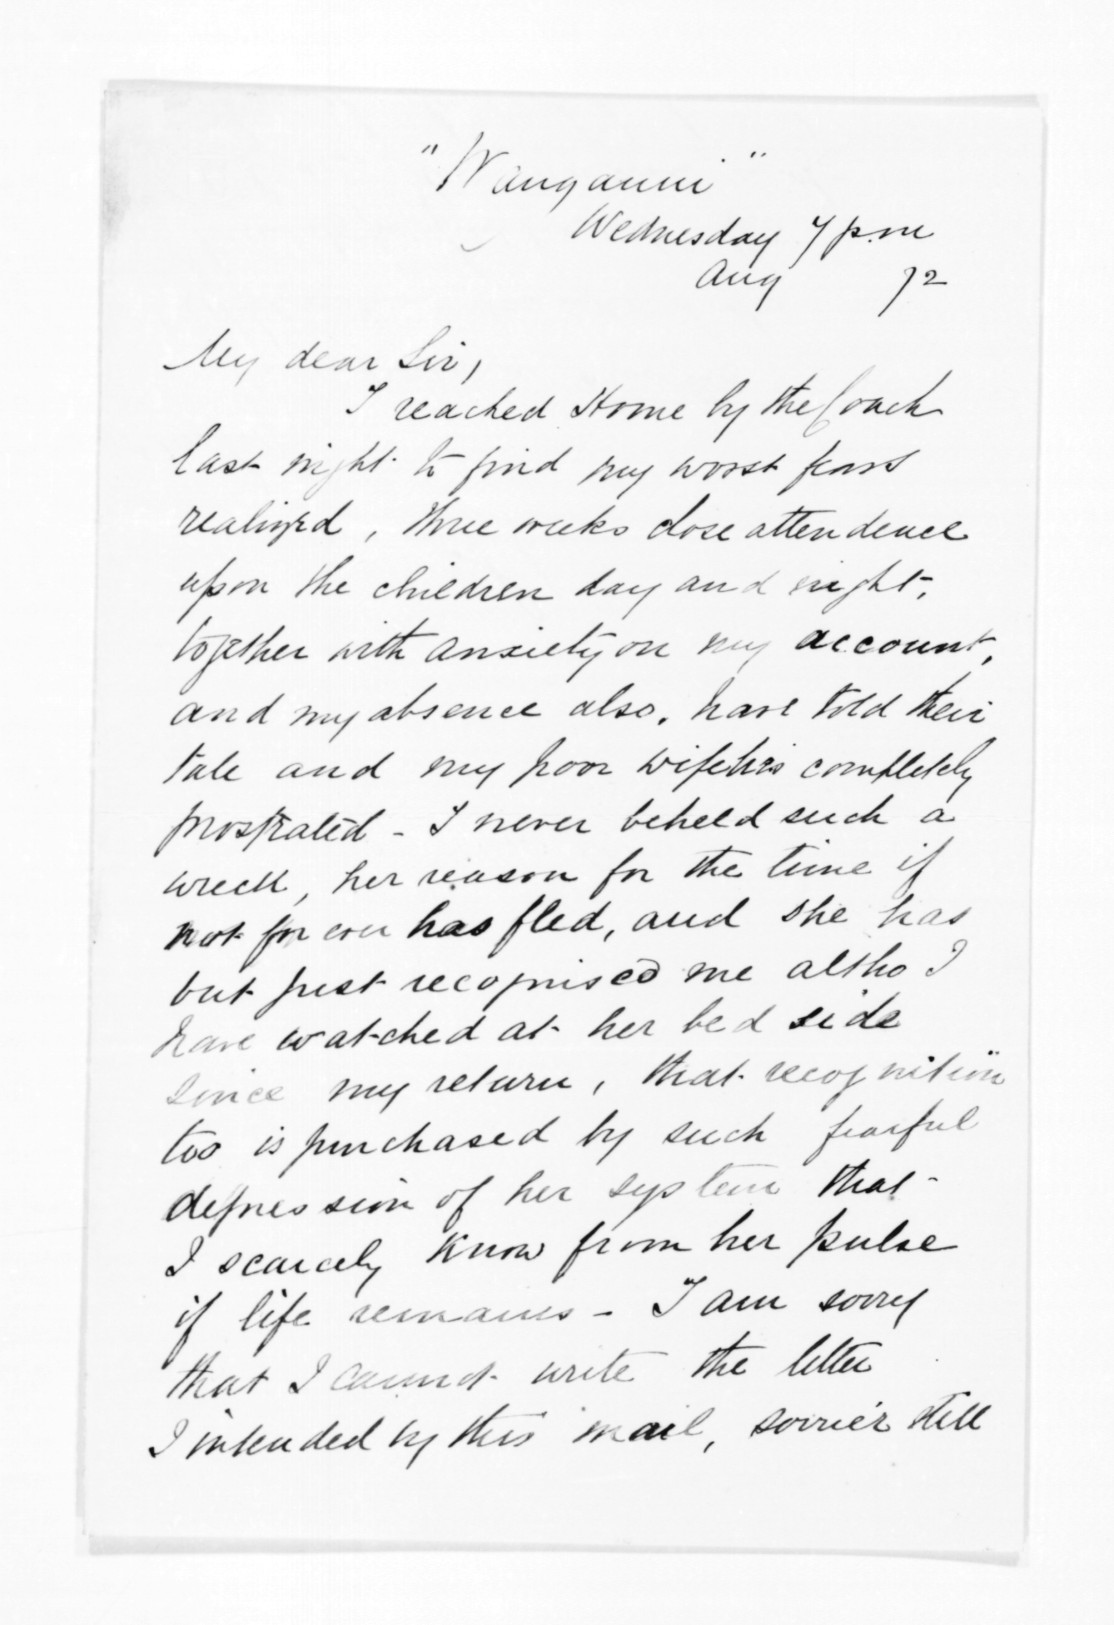 "Wanganui"
Wednesday 7 p.m
Aug 72
My dear Sir,
I reached Home by the Coach
last night to find my worst fears
realized, three weeks close attendence
upon the children day and night,
together with anxiety on my account,
and my absence also, have told their
tale and my poor wife lies completely
prostrated - I never beheld such a
wreck, her reason for the time if
not for ever has fled, and she has
but just recognised me altho I
have watched at her bed side
since my return, that recognition
too is purchased by such fearful
depression of her system that
I scarcely know from her pulse
if life remains - I am sorry
that I cannot write the letter
I intended by this mail, sorrier still